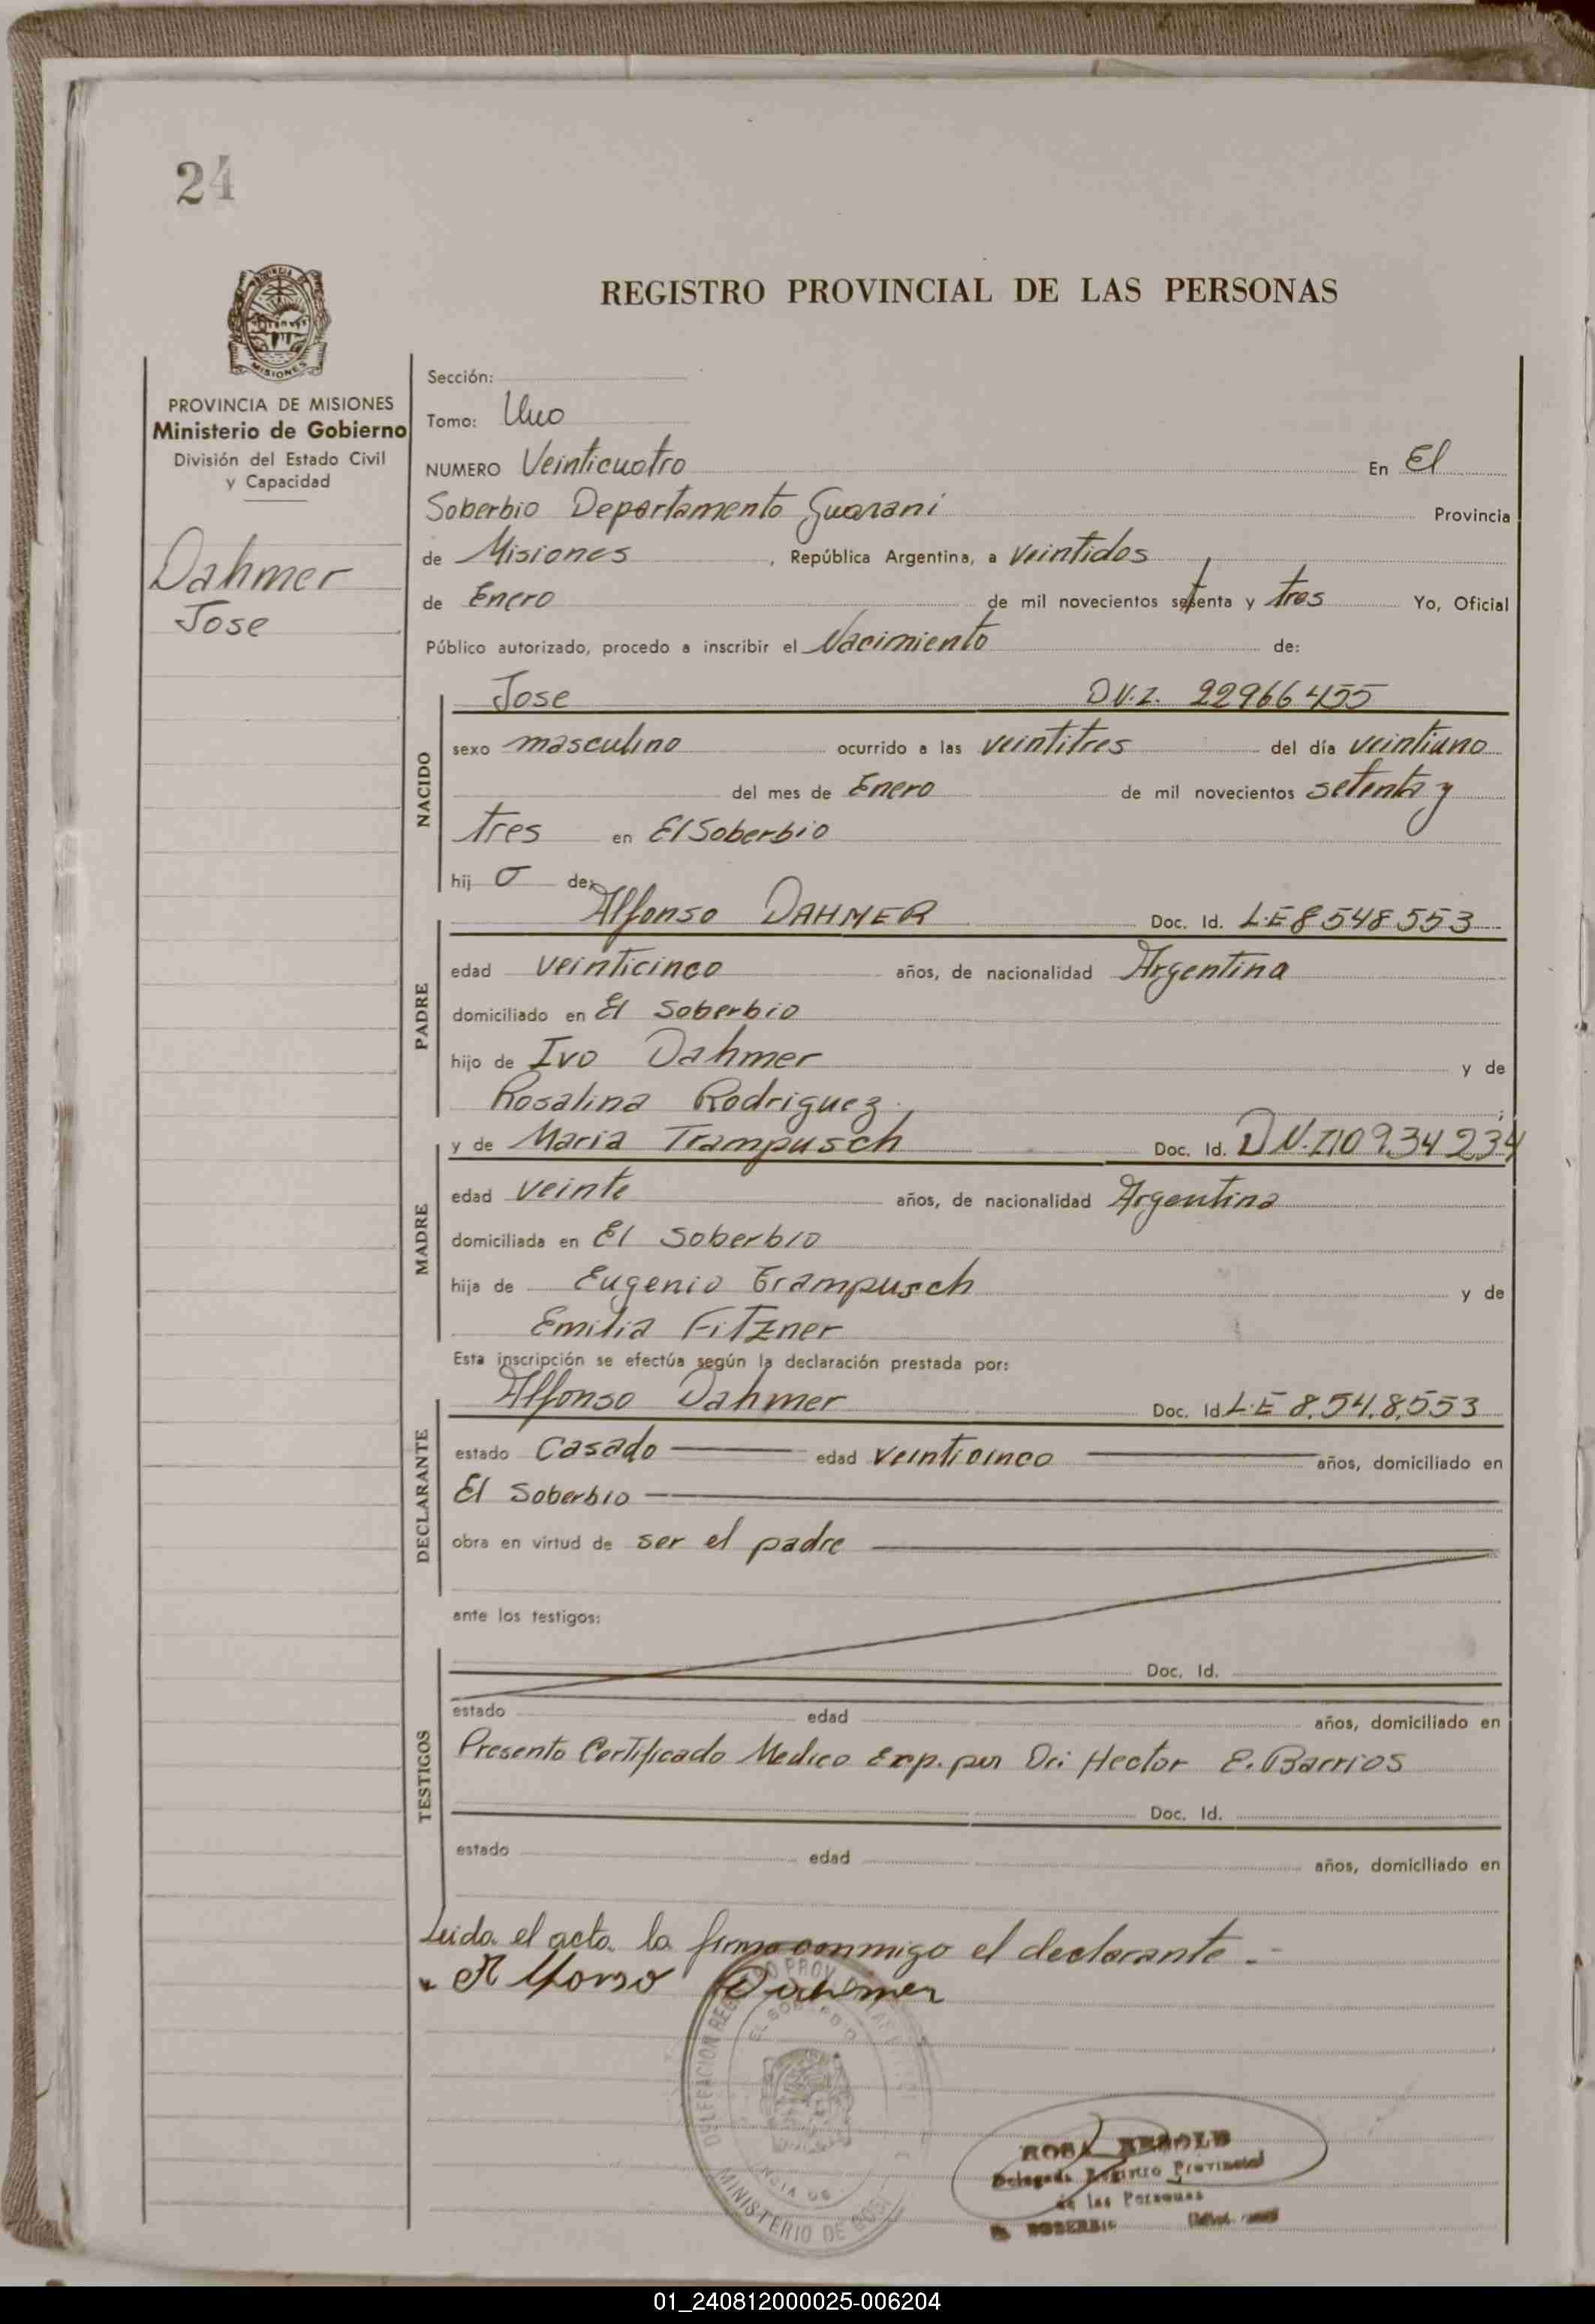 24
REGISTRO PROVINCIAL DE LAS PERSONAS
MISIONES
PROVINCIA DE MISIONES
Ministerio de Gobierno
División del Estado Civil
y Capacidad
Dahmer
Jose
Sección:
Tomo: Uno
NUMERO Veinticuatro En El
Soberbio Departamento Guarani Provincia
de Misiones, República Argentina, a veintidos
de Enero de mil novecientos setenta y tres Yo, Oficial
Público autorizado, procedo a inscribir el Nacimiento de:
NACIDO
Jose D.N.I. 22966455
sexo masculino ocurrido a las veintitres del día veintiuno
del mes de Enero de mil novecientos setenta y
tres en El Soberbio
hij o de:
PADRE
Alfonso DAHMER Doc. Id. L.E 8548553
edad veinticinco años, de nacionalidad Argentina
domiciliado en El Soberbio
hijo de Ivo Dahmer y de
Rosalina Rodriguez ;
MADRE
y de Maria Trampusch Doc. Id. D.N.I 10934234
edad veinte años, de nacionalidad Argentina
domiciliada en El Soberbio
hija de Eugenio Trampusch y de
Emilia Fitzner
Esta inscripción se efectúa según la declaración prestada por:
DECLARANTE
Alfonso Dahmer Doc. Id. L.E 8.548.553
estado Casado edad veinticinco años, domiciliado en
El Soberbio
obra en virtud de ser el padre
ante los testigos:
TESTIGOS
Doc. Id.
estado edad años, domiciliado en
Presento Certificado Medico Exp. por Dr: Hector E. Barrios
Doc. Id.
estado edad años, domiciliado en
Leida el acta la firma conmigo el declarante.-
Alfonso Dahmer
DELEGACION REG PROV
EL SOBERBIO
MINISTERIO DE GOB
ROSA
Delegada Registro Provincial
de las Personas
SOBERBIO
01_240812000025-006204